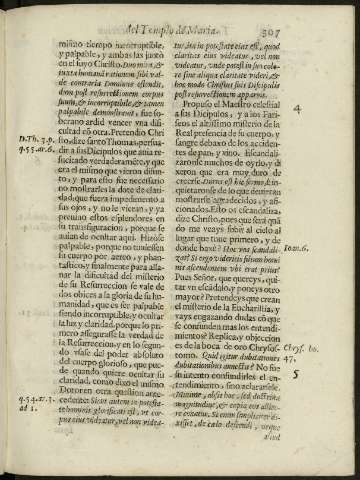 del Templo de Maria. 307
mismo tiempo incorruptible,
y palpable, y ambas las juntò
en el suyo Christo. Duo mira, &
iuxta humanã rationem sibi valde
contraria Dominus ostendit,
dum post resurrectionem corpus
suum, & incorruptibile, & tamen
palpabile demonstravit; fue soberano
ardid vencer vna dificultad
con otra. Pretendiò Christo,
dize santo Thomas, persuadir
à sus Dicipulos que avia resucitado
verdaderamẽte, y que
era el mismo que vieron difunto,
y para esto fue necesario
no mostrarles la dote de claridad,
que fuera impedimento a
sus ojos, y no le vieran, y ya
previno estos esplendores en
su transfiguracion, porque se
avian de ocultar aqui. Hizose
palpable, porque no tuviessen
su cuerpo por aereo, y phantastico;
y finalmente para allanar
la dificultad del misterio
de su Resurreccion se vale de
dos obices a la gloria de su humanidad,
que es ser palpable
siendo incorruptible, y ocultar
la luz, y claridad, porque lo primero
assegurasse la verdad de
la Resurreccion, y en lo segundo
vsasse del poder absoluto
del cuerpo glorioso, que puede
quando quiere ocultar su
claridad, como dixo el mismo
Doctor en otra question antecedente:
Sicut autem in potestate
hominis glorificati est, vt corpus
eius videatur, vel non videa-
D. Th. 3. p.
q. 55. ar. 6.
q. 54. ar. 3.
ad 1.
tur, ita in potestate eius est, quod
claritas eius videatur, vel non
videatur, vnde potest in suo colore
sine aliqua claritate videri, &
hoc modo Christus suis Discipulis
post resurrectionem apparuit.
Propuso el Maestro celestial
a sus Dicipulos, y a los Fariseos
el altissimo misterio de la
Real presencia de su cuerpo, y
sangre debaxo de los accidentes
de pan, y vino. Escandalizaronse
muchos de oyrlo, y dixeron
que era muy duro de
creerse. Durus est hic sermo, sin
quietaronse de lo que devieran
mostrarse agradecidos, y aficionados.
Esto os escandaliza,
dize Christo, pues què serà quãdo
me veays subir al cielo al
lugar que tuve primero, y de
donde baxè? Hoc vos scandalizat?
Si ergo videritis filium hominis
ascendentem vbi erat prius?
Pues Señor, que quereys, quitar
vn escãdalo, y poneys otro
mayor? Pretendeys que crean
el misterio de la Eucharistia, y
vays engazando dudas cõ que
se confundan mas los entendimientos?
Replica, y objeccion
es de la boca de oro Chrysostomo.
Quid igitur dubitationes
dubitationibus annectis? No fue
su intento confundirles el entendimiento,
sino aclararsele.
Minimè, absit hoc, sed doctrina
magnitudine, & copia eos allicere
conatur. Si enim simpliciter dixisset,
de caelo descendi, vtque
aliud
4
Ioan. 6.
Chrys. ho.
47.
5